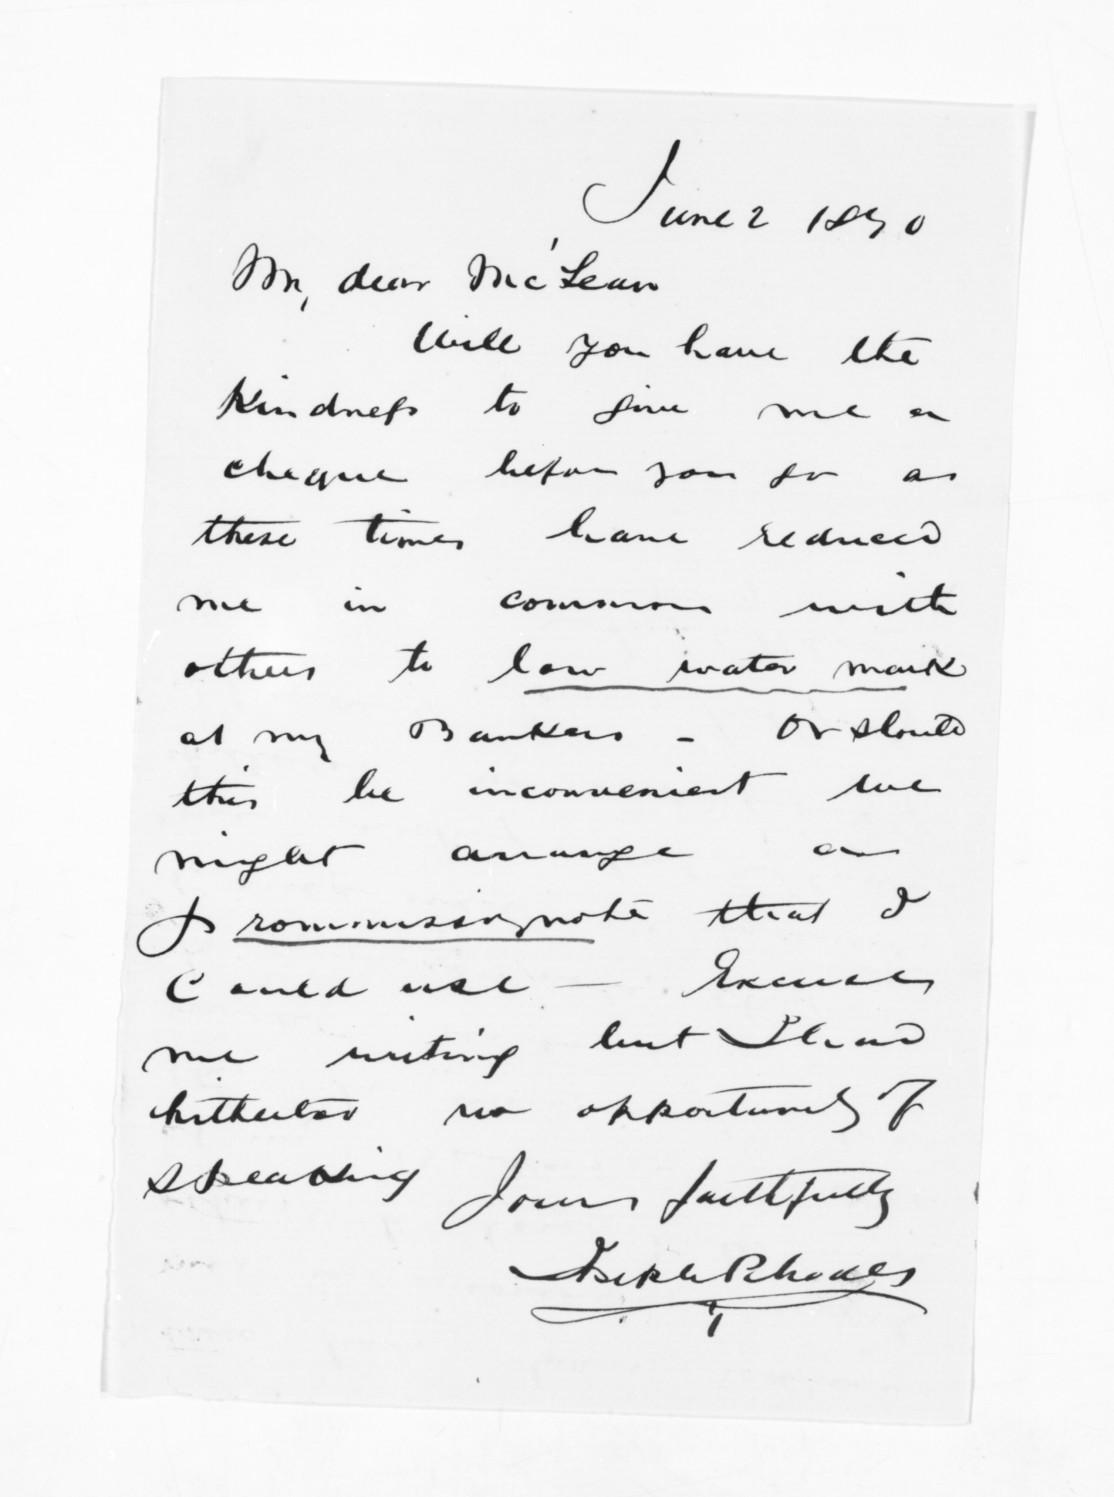 June 2 1870
My dear McLean
Will you have the
Kindness to give me a
cheque before you go as
these times have reduced
me in common with
others to low water mark
at my Bankers - Or should
this be inconvenient we
might arrange a
Promissory note that I
Could use — Excuse
me writing but I had
hitherto no opportunity of
speaking
Yours faithfully
Joseph Rhodes